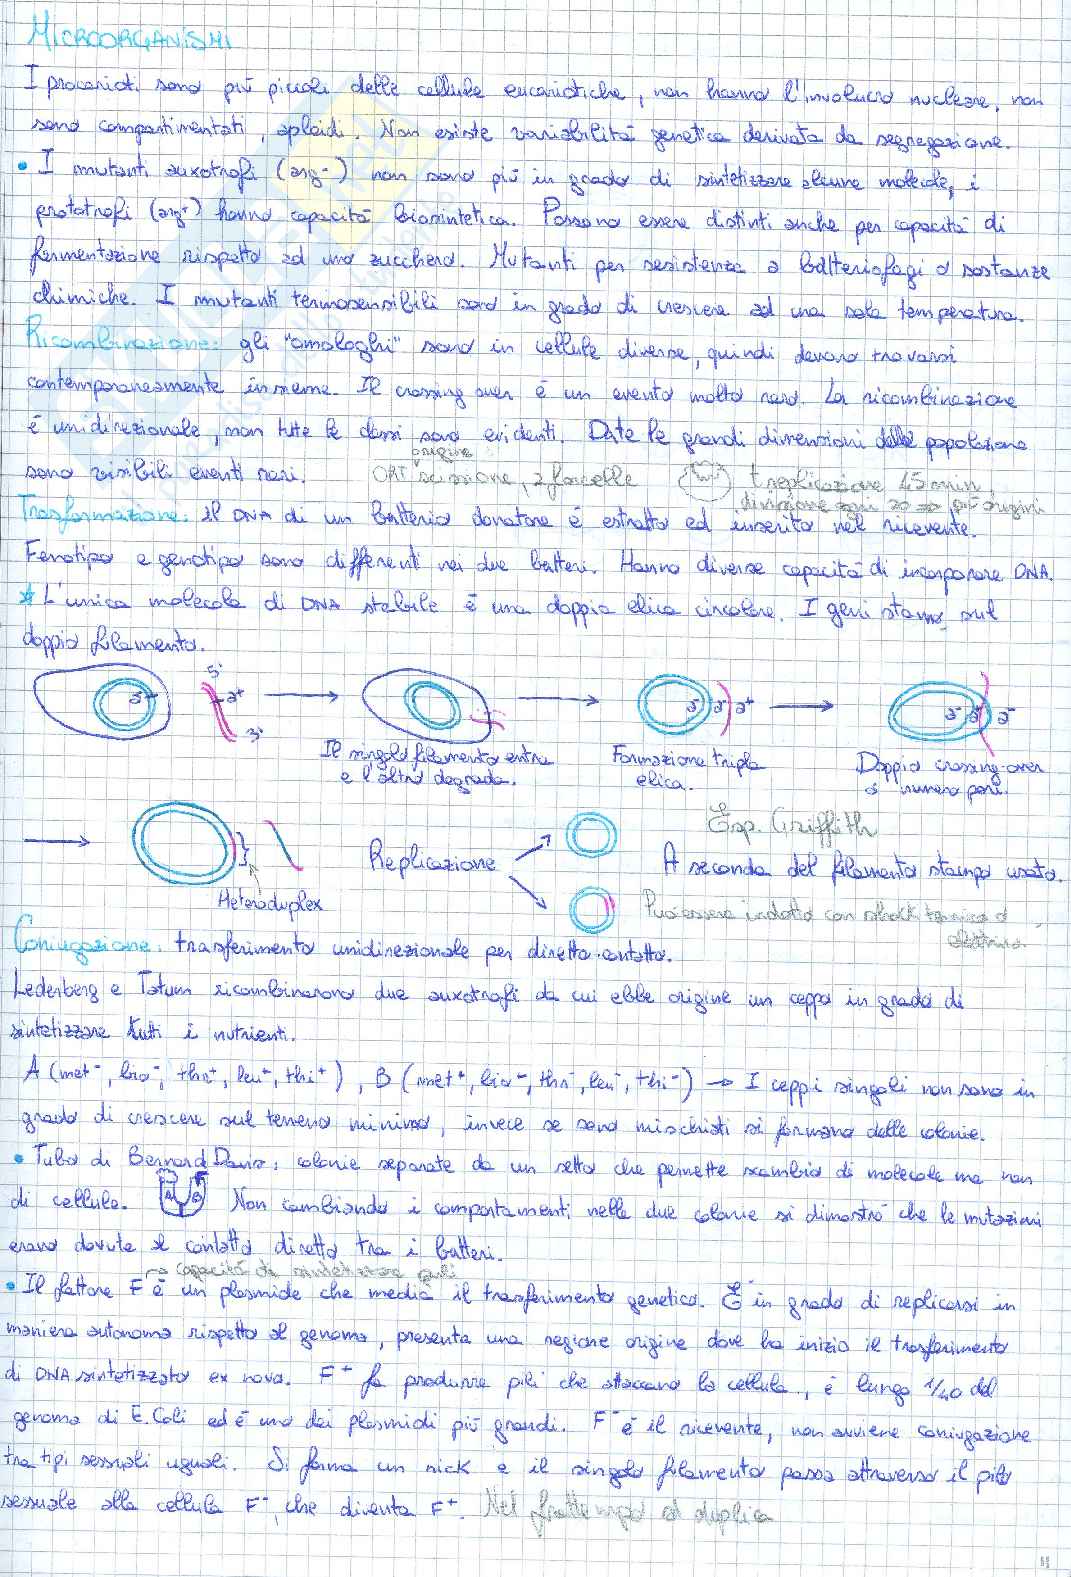 MICROORGANISMI
I procarioti sono più piccoli delle cellule eucariotiche, non hanno l'involucro nucleare, non
sono compartimentati, aploidi. Non esiste variabilità genetica derivata da segregazione.
• I mutanti auxotrofi (arg⁻) non sono più in grado di sintetizzare alcune molecole, i
prototrofi (arg⁺) hanno capacità biosintetica. Possono essere distinti anche per capacità di
fermentazione rispetto ad uno zucchero. Mutanti per resistenza a batteriofagi o sostanze
chimiche. I mutanti termosensibili sono in grado di crescere ad una sola temperatura.
Ricombinazione: gli "omologhi" sono in cellule diverse, quindi devono trovarsi
contemporaneamente insieme. Il crossing over è un evento molto raro. La ricombinazione
è unidirezionale, non tutte le classi sono evidenti. Date le grandi dimensioni della popolazione
sono visibili eventi rari.
origine
ORI scissione, 2 forcelle
t replicazione 45 min
divisione ogni 20 → più origini
Trasformazione: il DNA di un batterio donatore è estratto ed inserito nel ricevente.
Fenotipo e genotipo sono differenti nei due batteri. Hanno diverse capacità di incorporare DNA.
* L'unica molecola di DNA stabile è una doppia elica circolare. I geni stanno sul
doppio filamento.
5'
a⁻ a⁺ a⁻ a⁻ a⁺ a⁻ a⁺ a⁻
3'
Il singolo filamento entra
e l'altro degrada.
Formazione tripla
elica.
Doppio crossing-over
o numero pari.
Heteroduplex
Replicazione
Esp. Griffith
A seconda del filamento stampo usato.
Può essere indotta con shock termico o
elettrico.
Coniugazione: trasferimento unidirezionale per diretto contatto.
Lederberg e Tatum ricombinarono due auxotrofi da cui ebbe origine un ceppo in grado di
sintetizzare tutti i nutrienti.
A (met⁻, bio⁻, thr⁺, leu⁺, thi⁺), B (met⁺, bio⁻, thr⁻, leu⁻, thi⁻) → I ceppi singoli non sono in
grado di crescere sul terreno minimo, invece se sono mischiati si formano delle colonie.
• Tubo di Bernard Davis: colonie separate da un setto che permette scambio di molecole ma non
di cellule. A B Non cambiando i comportamenti nelle due colonie si dimostrò che le mutazioni
erano dovute al contatto diretto tra i batteri.
→ capacità di sintetizzare pili
• Il fattore F è un plasmide che media il trasferimento genetico. È in grado di replicarsi in
maniera autonoma rispetto al genoma, presenta una regione origine dove ha inizio il trasferimento
di DNA sintetizzato ex novo. F⁺ fa produrre pili che attaccano la cellula, è lungo 1/40 del
genoma di E. Coli ed è uno dei plasmidi più grandi. F⁻ è il ricevente, non avviene coniugazione
tra tipi sessuali uguali. Si forma un nick e il singolo filamento passa attraverso il pilo
sessuale alla cellula F⁻, che diventa F⁺. Nel frattempo si duplica
11